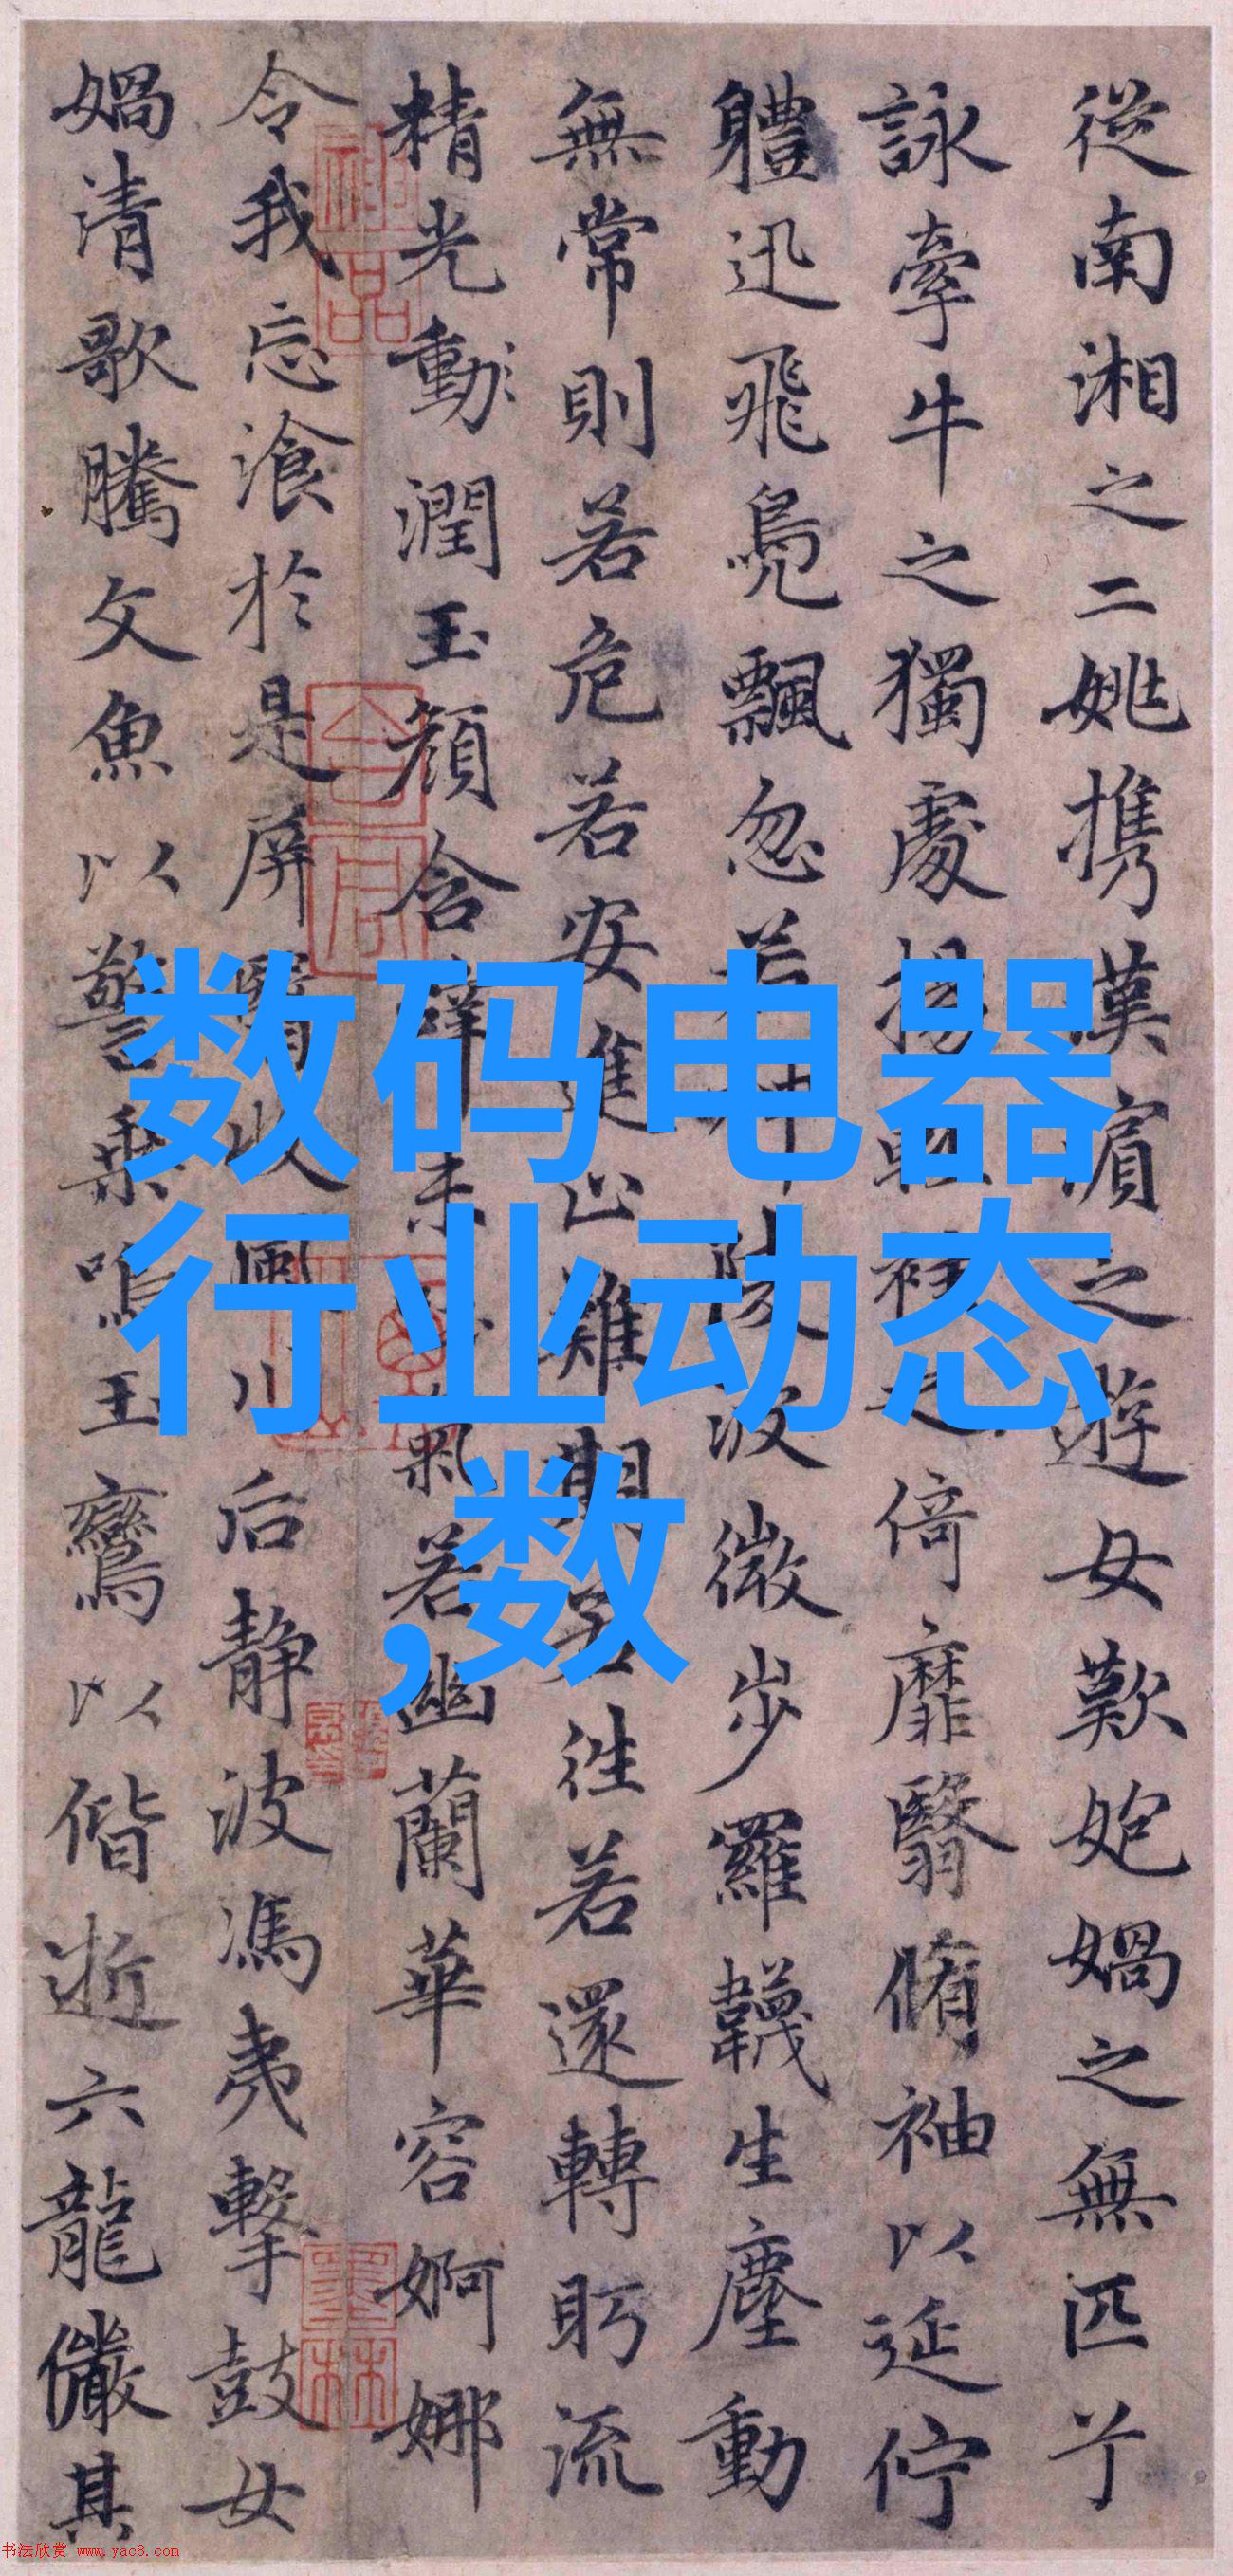 從南湘之二姚携漢濵之遊女歎匏媧之無匹兮
詠牽牛之獨處揚輕袿之倚靡翳脩袖以延佇
軆迅飛鳧飄忽若神陵波微步羅韈生塵動
無常則若危若安進止難期若往若還轉眄流
精光動潤玉顏含辭未吐氣若幽蘭華容婀娜
令我忘湌於是屏翳收風川后静波馮夷擊鼓女
媧清歌騰文魚以警乗鳴玉鸞以偕逝六龍儼其
神品
数码电器
行业动态
,数
书法欣赏 www.yac8.com